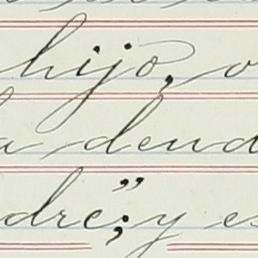 hijo, o
a deud
dre"; y es